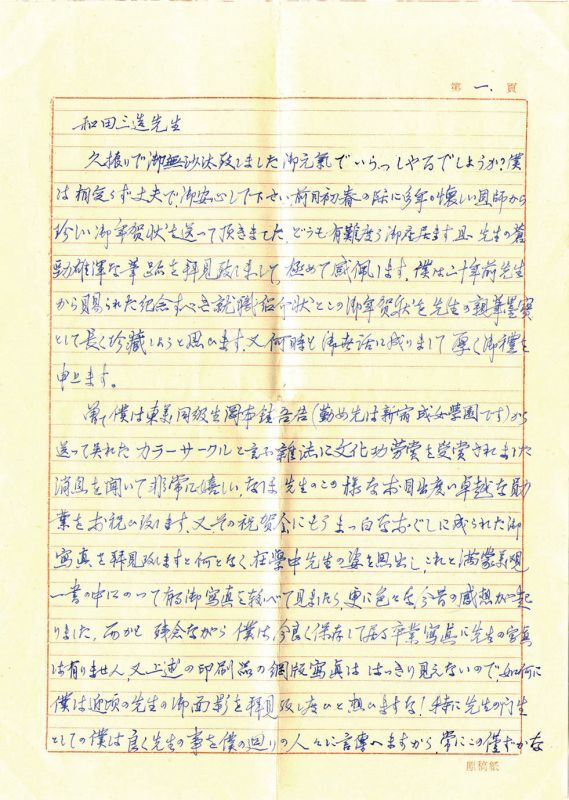 第 一. 頁
和田三造先生
久振りで御無沙汰致しました御元氣でいらっしやるでしようか?僕
は相変らず丈夫で御安心して下さい前月初春の際に多年の懐しい恩師から
珍しい御年賀状を送って頂きました。どうも有難度う御座居ます。且 先生の蒼
勁雄渾な筆跡を拝見致しまして、極めて感佩します。僕は二十年前先生
から賜られた紀念すべき就職紹介状とこの御年賀状を先生の執筆墨寶
として長く珍藏しようと思ひます。又何時も御世話に成りまして厚く御禮を
申上ます。
曽て僕は東美同級生岡本 吾君(勤め先は新宿成女學園です)から
送って呉れたカラーサークルと言ふ雑誌に文化功労賞を受賞されました
消息を聞いて非常に嬉しい、なほ先生のこの様なお目出度い卓越な勛
業をお祝ひ致します。又その祝賀会にもうまっ白なおぐしに成られた御
寫真を拝見致しますと何となく在學中先生の姿を思出し、これと満蒙
一書の中にのって有る御寫真を較べて見ましたら、更に色々な今昔の感想が起
りました。而かも 残念ながら僕は今良く保存して居る卒業寫真に先生の寫真
は有りません又上述の印刷品の網版寫真は はっきり見えないので如何に
僕は近頃の先生の御面影を拝見致し度ひと想ひますな!特に先生の門生
としての僕は良く先生の事を僕の廻りの人々に言傳へますから、常にこの僅ずかな
原稿紙